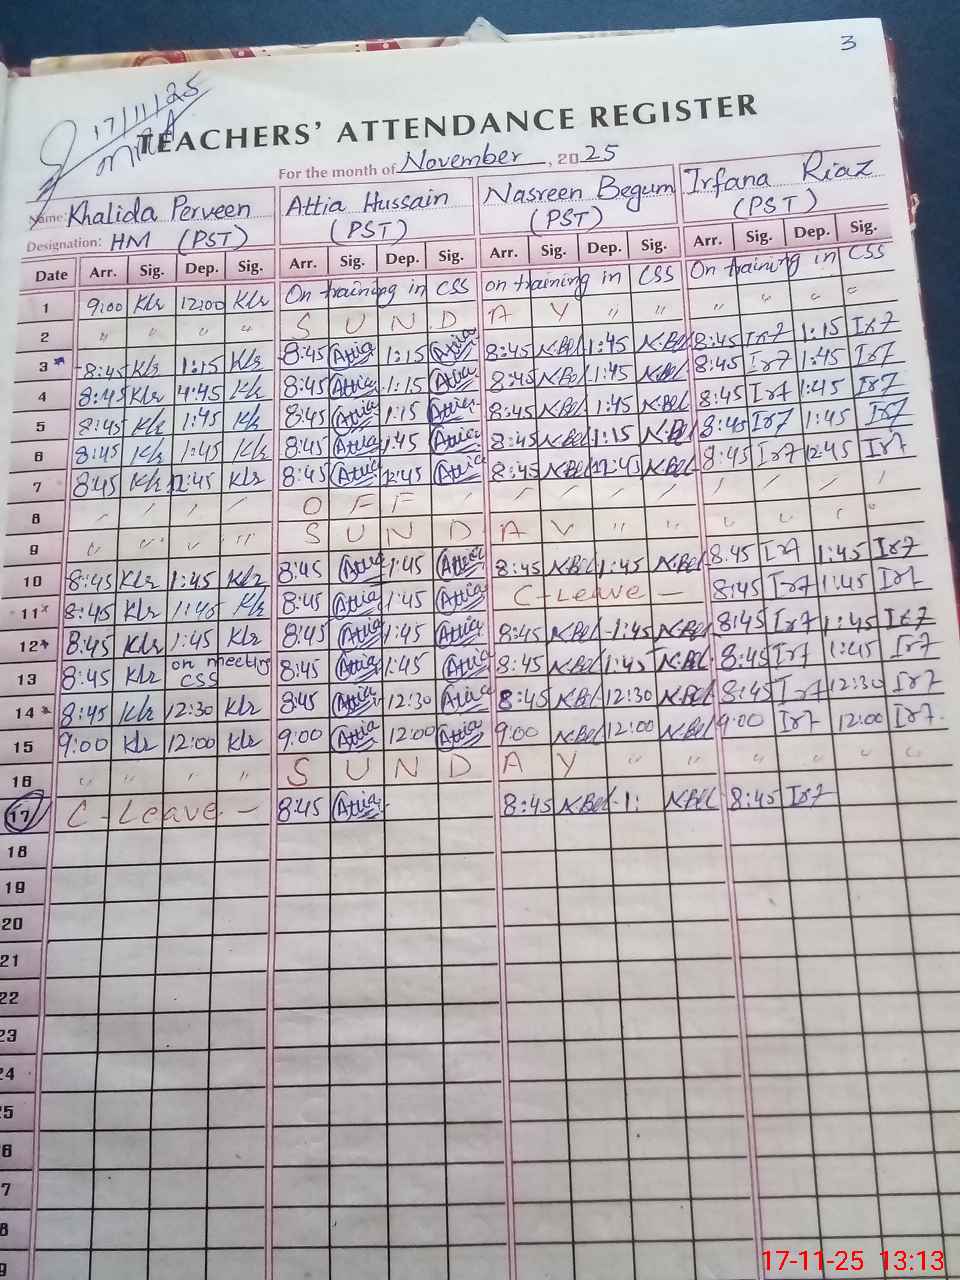 3
17/11/25
TEACHERS' ATTENDANCE REGISTER
For the month of November, 2025
Name: Khalida Perveen Attia Hussain Nasreen Begum Irfana Riaz
Designation: HM (PST) (PST) (PST) (PST)
Date Arr. Sig. Dep. Sig. Arr. Sig. Dep. Sig. Arr. Sig. Dep. Sig. Arr. Sig. Dep. Sig.
1 9:00 Klr 12:00 Klr On training in CSS on training in CSS On training in CSS
2 " " " " S U N D A Y " " " " " "
3 8:45 Klr 1:15 Klr 8:45 Attia 1:15 Attia 8:45 N.Bel 1:45 N.Bel 8:45 Ir7 1:15 Ir7
4 8:45 Klr 4:45 Klr 8:45 Attia 1:15 Attia 8:45 N.Bel 1:45 N.Bel 8:45 Ir7 1:45 Ir7
5 8:45 Klr 1:45 Klr 8:45 Attia 1:15 Attia 8:45 N.Bel 1:45 N.Bel 8:45 Ir7 1:45 Ir7
6 8:45 Klr 1:45 Klr 8:45 Attia 1:45 Attia 8:45 N.Bel 1:15 N.Bel 8:45 Ir7 1:45 Ir7
7 8:45 Klr 12:45 Klr 8:45 Attia 12:45 Attia 8:45 N.Bel 12:45 N.Bel 8:45 Ir7 12:45 Ir7
8 / / / / O F F / / / / / / / / /
9 " " " " S U N D A Y " " " " " "
10 8:45 Klr 1:45 Klr 8:45 Attia 1:45 Attia 8:45 N.Bel 1:45 N.Bel 8:45 Ir7 1:45 Ir7
11* 8:45 Klr 1:45 Klr 8:45 Attia 1:45 Attia C-Leave - 8:45 Ir7 1:45 Ir7
12* 8:45 Klr 1:45 Klr 8:45 Attia 1:45 Attia 8:45 N.Bel 1:45 N.Bel 8:45 Ir7 1:45 Ir7
13 8:45 Klr on meeting CSS 8:45 Attia 1:45 Attia 8:45 N.Bel 1:45 N.Bel 8:45 Ir7 1:45 Ir7
14* 8:45 Klr 12:30 Klr 8:45 Attia 12:30 Attia 8:45 N.Bel 12:30 N.Bel 8:45 Ir7 12:30 Ir7
15 9:00 Klr 12:00 Klr 9:00 Attia 12:00 Attia 9:00 N.Bel 12:00 N.Bel 9:00 Ir7 12:00 Ir7
16 " " " " S U N D A Y " " " " " "
17 C - Leave - 8:45 Attia 8:45 N.Bel 1: N.Bel 8:45 Ir7
18
19
20
21
22
23
24
25
6
7
8
9
17-11-25 13:13